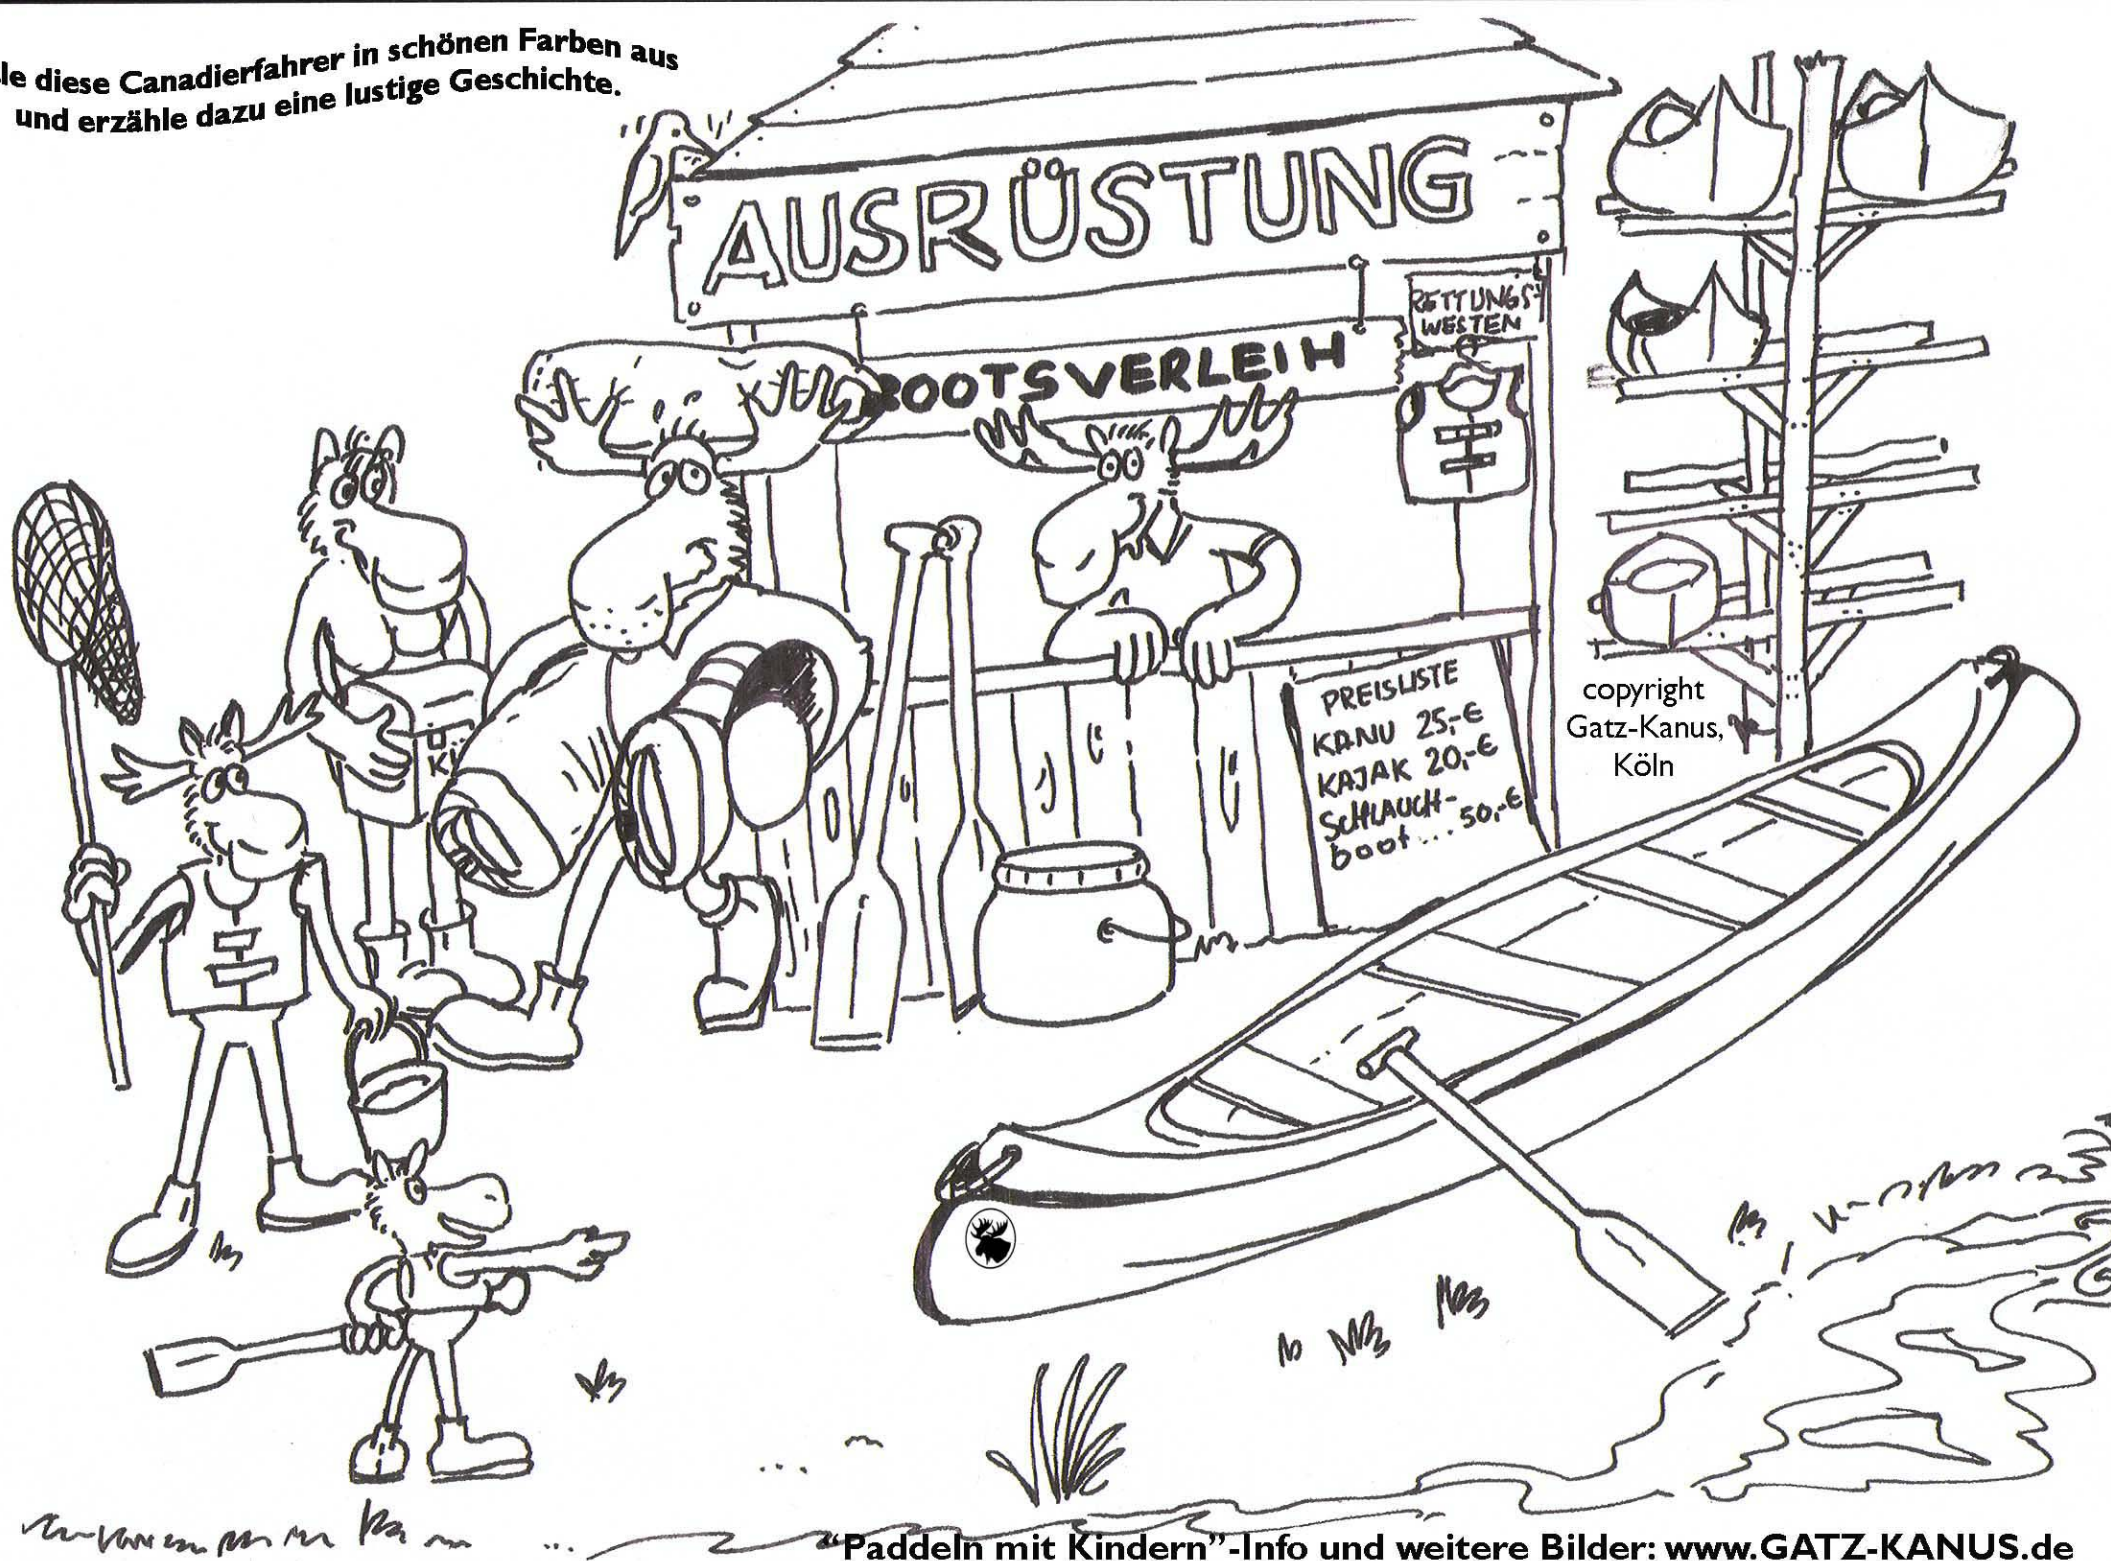 le diese Canadierfahrer in schönen Farben aus
und erzähle dazu eine lustige Geschichte.
AUSRÜSTUNG
RETTUNGS-
WESTEN
BOOTSVERLEIH
PREISLISTE
KANU 25,-€
KAJAK 20,-€
SCHLAUCH-
boot... 50,-€
copyright
Gatz-Kanus,
Köln
"Paddeln mit Kindern"-Info und weitere Bilder: www.GATZ-KANUS.de